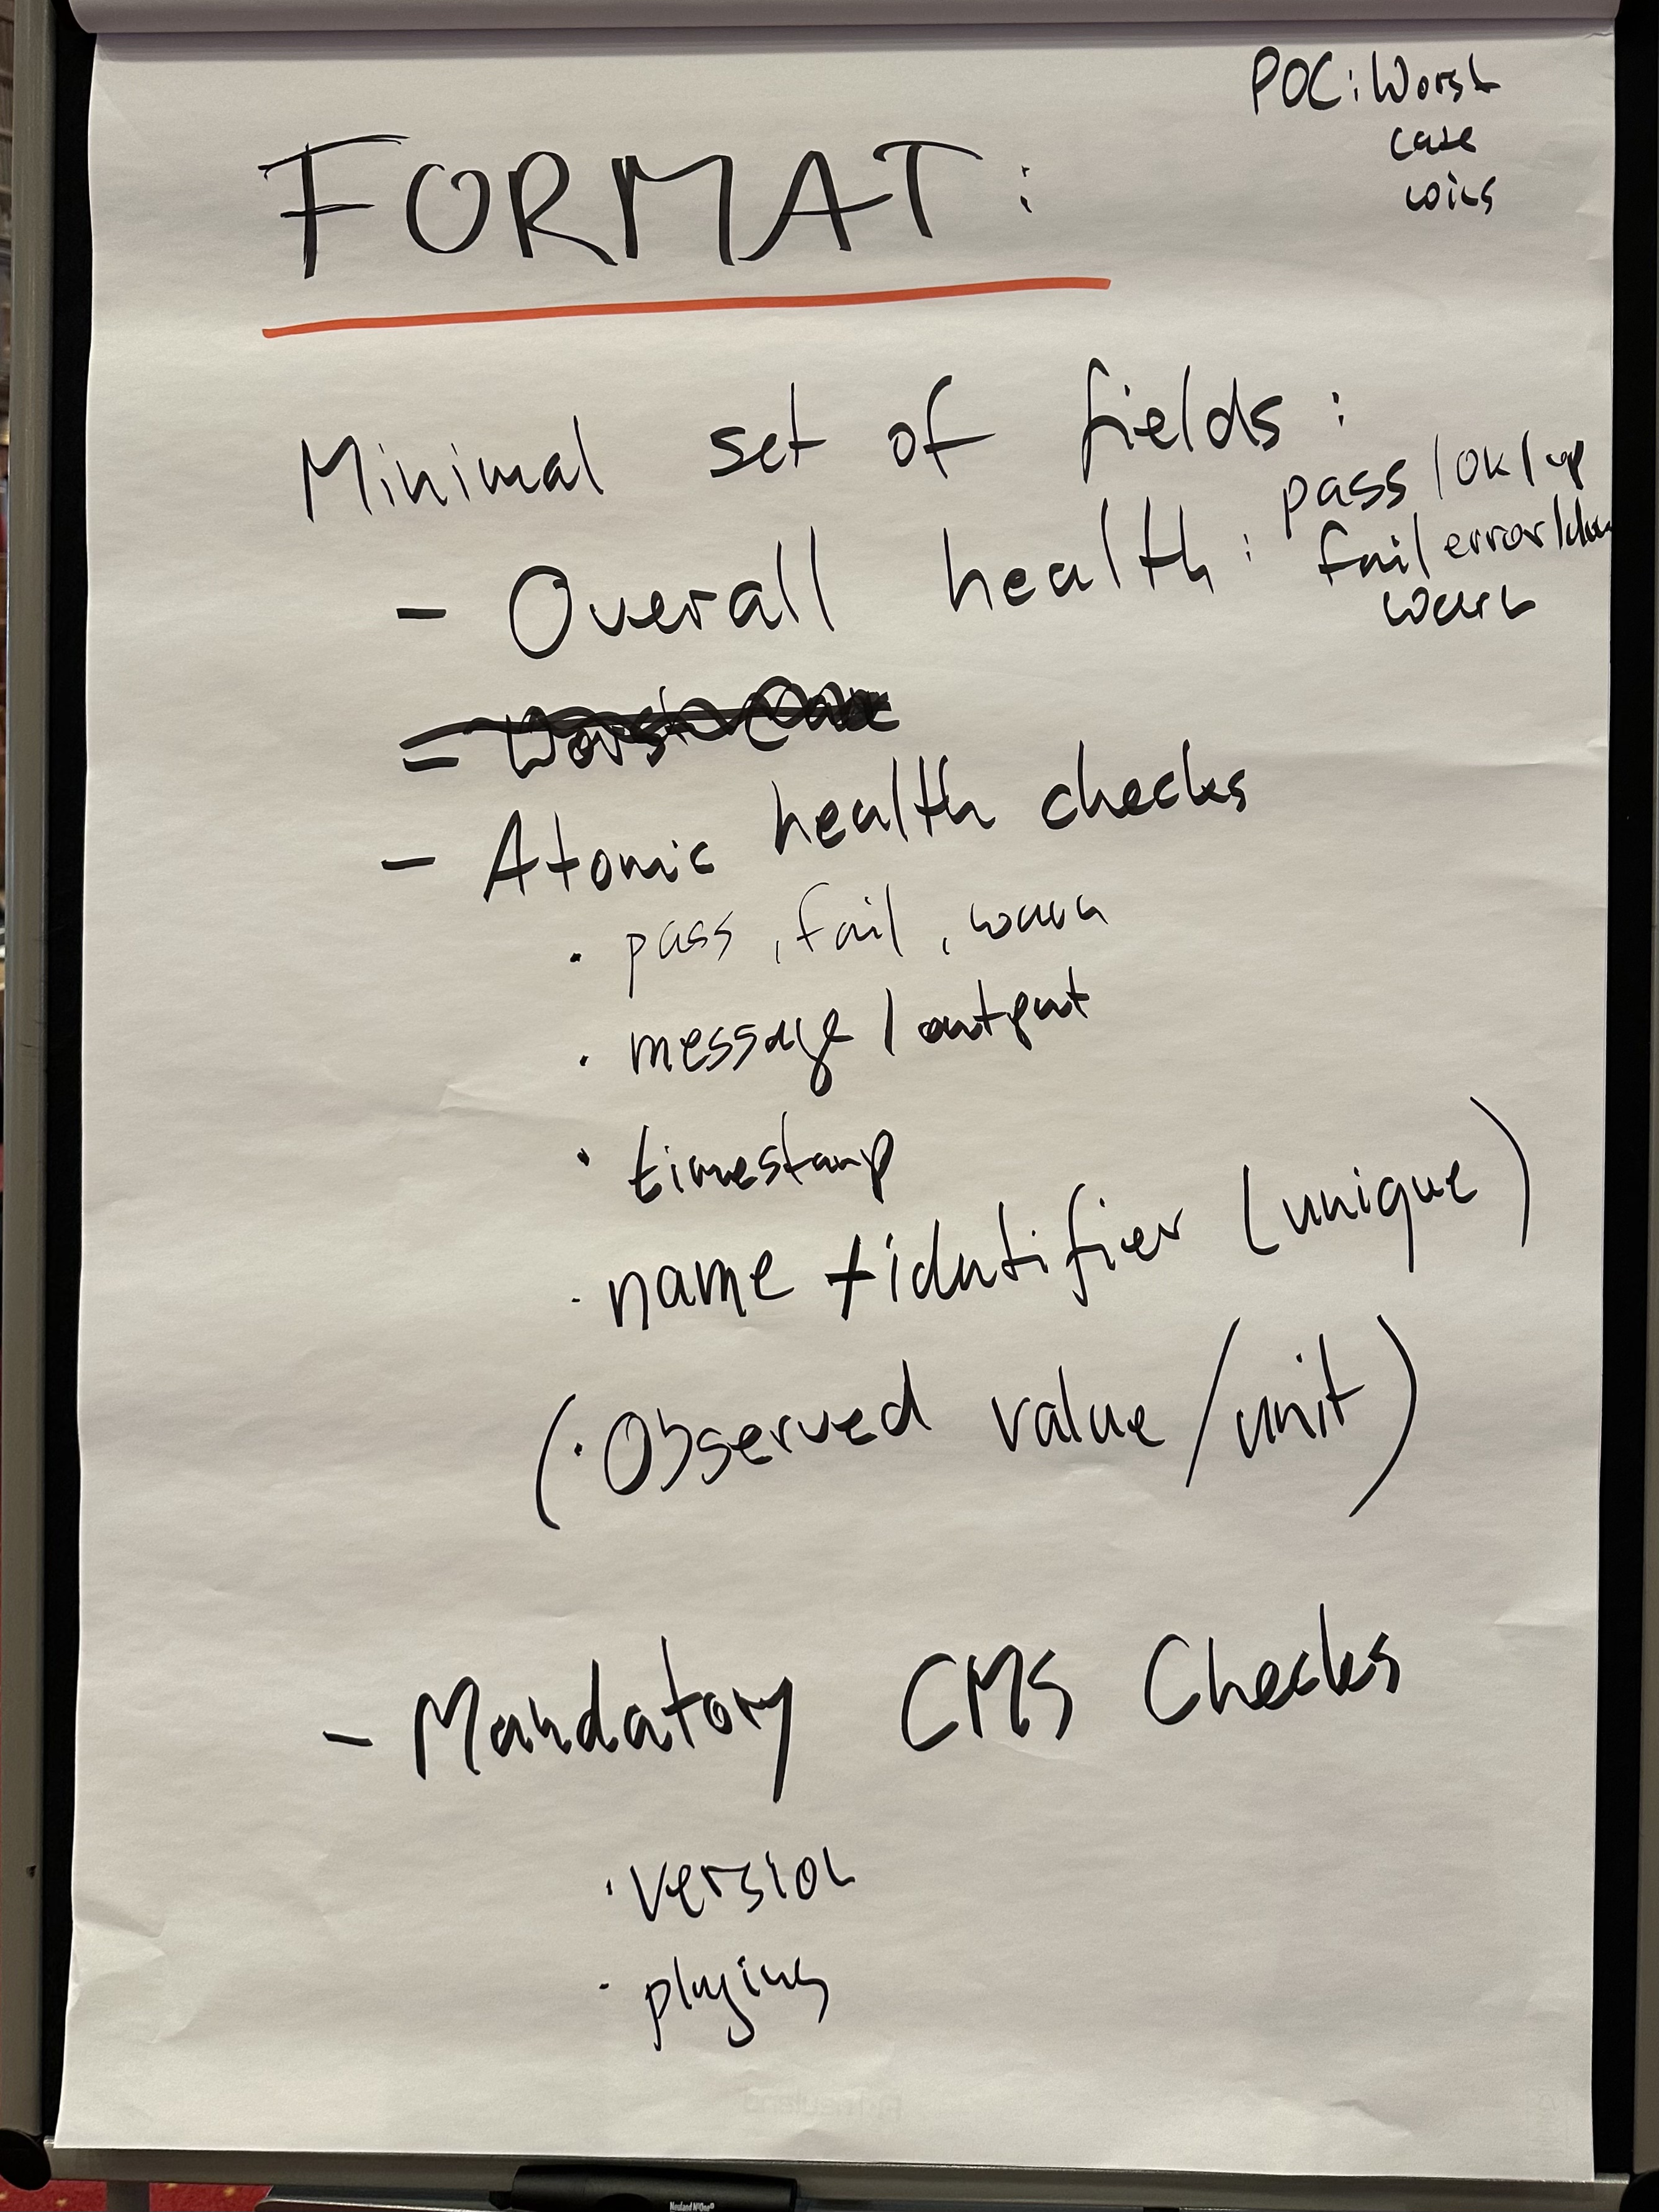 POC: Worst
case
wins
FORMAT:
Minimal set of fields:
- Overall health: pass / OK / up
fail error / down
warn
- Worst Case
- Atomic health checks
· pass, fail, warn
· message / output
· timestamp
· name + identifier (unique)
(· Observed value / unit)
- Mandatory CMS Checks
· version
· plugins
Neuland N°One®